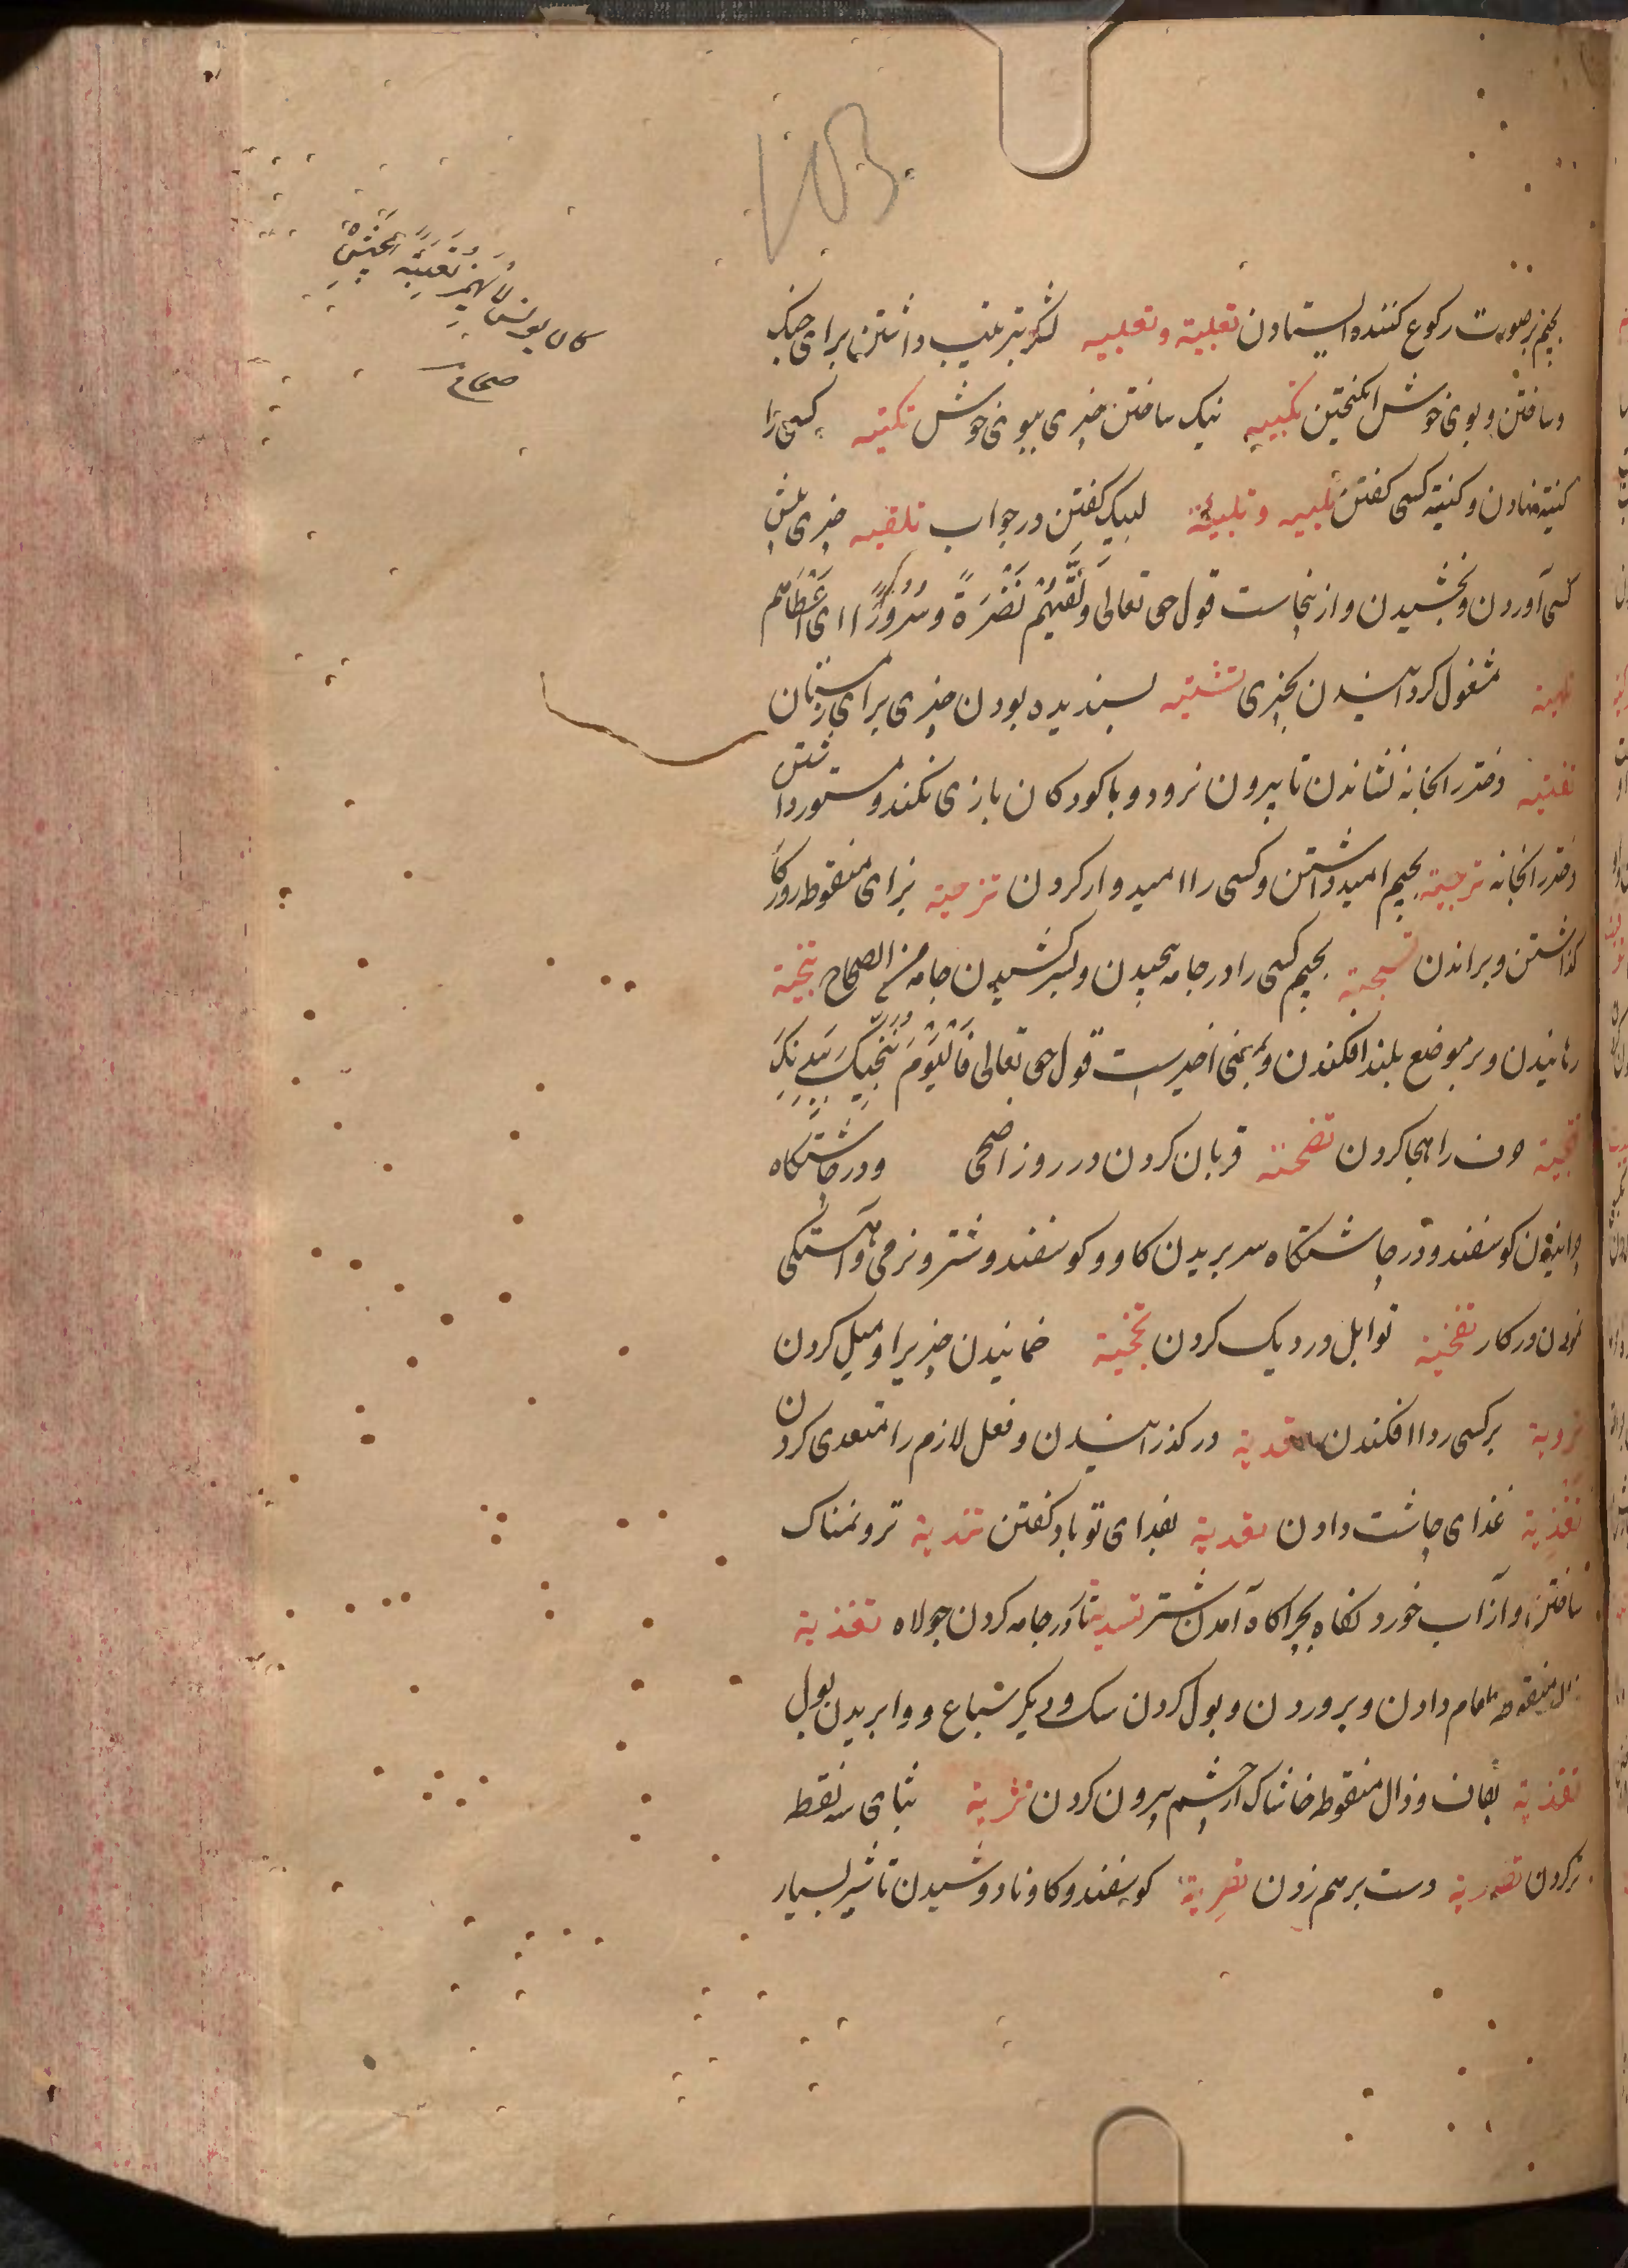 103
كان يونس لا يهمز تعبية الجيش
صحاح
بجیم بر صورت رکوع کننده ایستادن تعبیة وتعبیه لشکر بترتیب داشتن برای جنک
وساختن وبوی خوش انکیختن تکبیه نیک ساختن چیزی ببوی خوش تکنیه کسی را
کنیة نهادن وکنیة کسی کفتن تلبیه وتلبیئة لبیک کفتن در جواب تلقیه چیزی پیش
کسی آوردن وبخشیدن وازینجاست قول حق تعالی وَلَقَّیهُم نَضْرَةً وسُرُورًا ای اعطاهم
تلهیة مشغول کردانیدن بچیزی تشتیه بسندیده بودن چیزی برای زمستان
تفتیه دختر را بخانه نشاندن تا بیرون نرود وبا کودکان بازی نکند ومستور داشتن
دختر را بخانه ترجیة بجیم امید داشتن وکسی را امیدوار کردن تزجیة بزای منقوطه روزکار
کذاشتن وبراندن تسجیة بجیم کسی را در جامه پیچیدن وبسر کشیدن جامه من الصحاح تنجیة
رهانیدن وبر موضع بلند افکندن وبمعنی اخیرست قول حق تعالی فَالْیَوْمَ نُنَجِّیکَ بِبَدَنِکَ
تهجیة حرف را هجا کردن تضحیة قربان کردن در روز اضحی ودر چاشتکاه
چرانیدن کوسفند ودر چاشتکاه سر بریدن کاو وکوسفند وشتر ونرمی وآهستکی
نمودن در کار تفحیة توابل در دیک کردن تجخیة خمانیدن چیزیرا ومیل کردن
تردیة بر کسی ردا افکندن تعدیة در کذرانیدن وفعل لازم را متعدی کردن
تغدیة غذای چاشت دادن تفدیة بفدای تو باد کفتن تندیة تر ونمناک
ساختن واز آب خورد کفاه بچراکاه آمدن شتر تسدیة تار در جامه کردن جولاه تغذیة
بذال منقوطه طعام دادن وپروردن وبول کردن سک ودیکر سباع ووا بریدن بول
تقذیة بقاف وذال منقوطه خاشاک از چشم بیرون کردن تثریة بثای سه نقط
تر کردن تصدیة دست بر هم زدن تصریة کوسفند وکاو نادوشیدن تا شیر بسیار